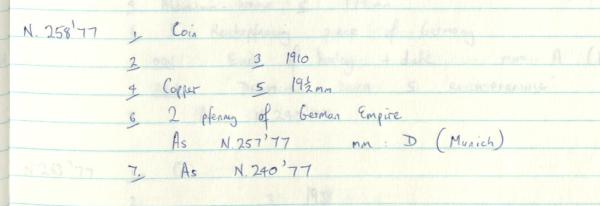 N. 258'77 1. Coin
2 3 1910
4 Copper 5 19½mm
6 2 pfennig of German Empire
As N.257'77 mm: D (Munich)
7. As N.240'77